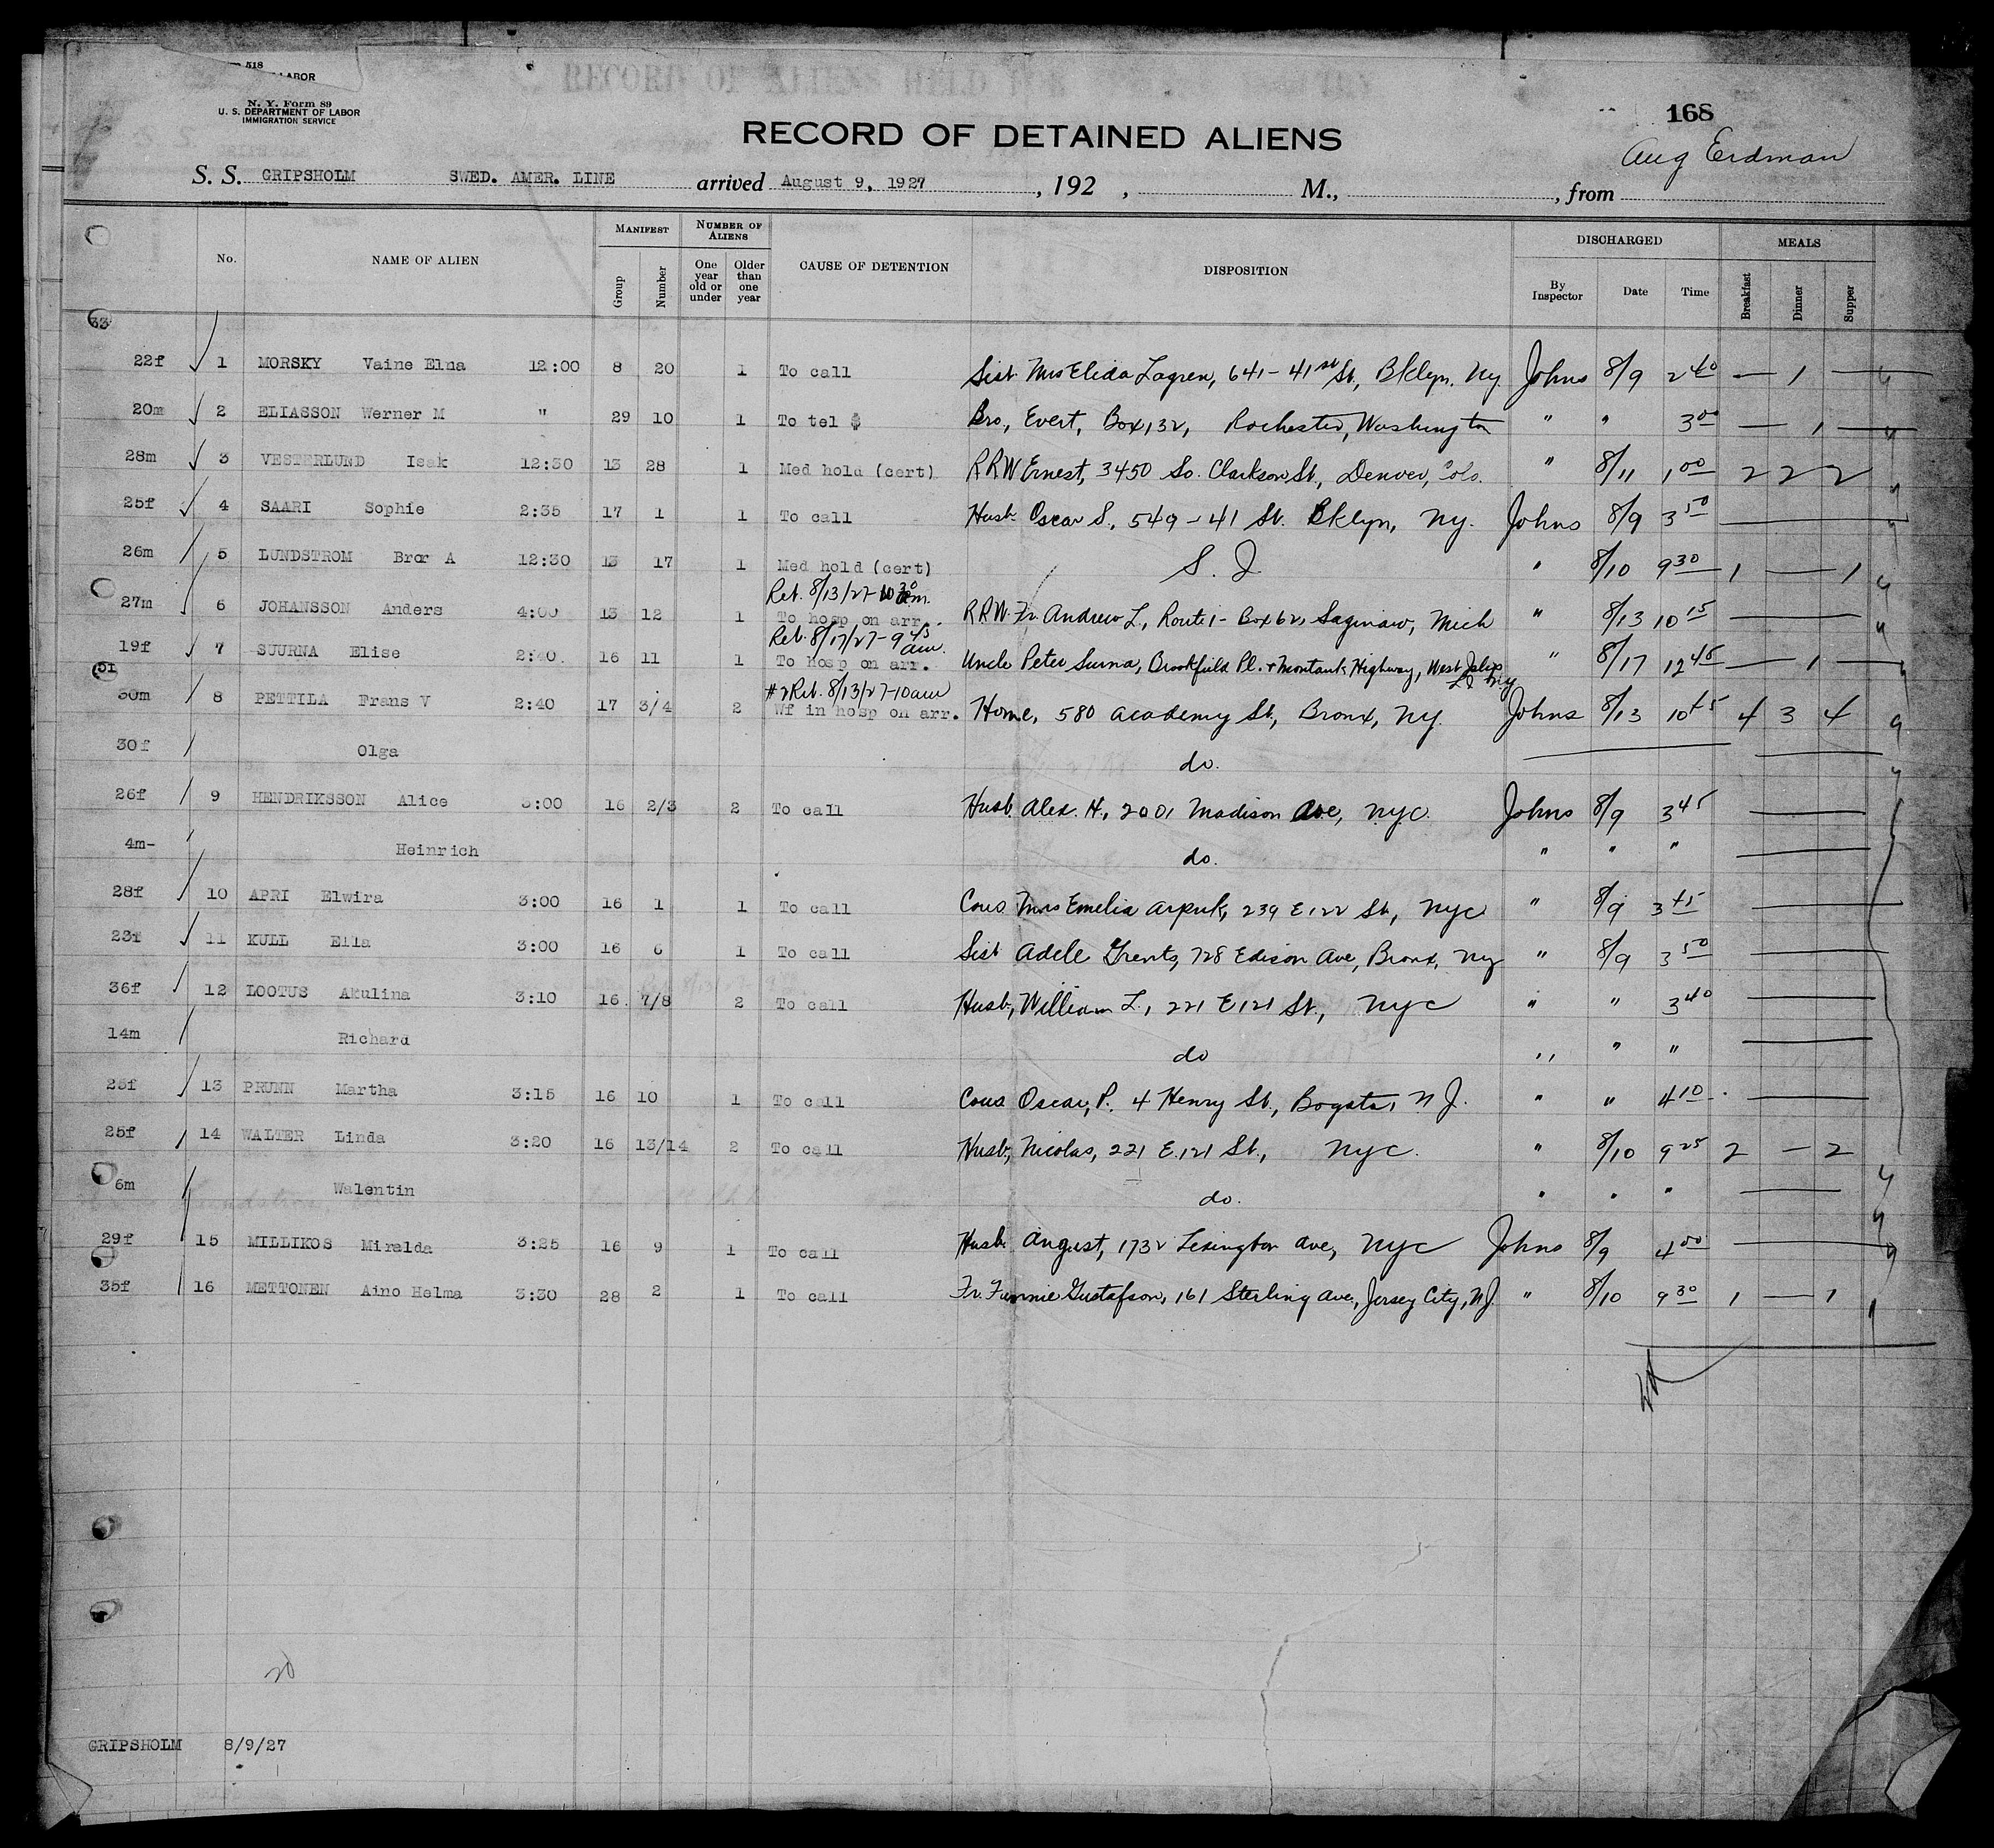 518
LABOR
N. Y. Form 89
U. S. DEPARTMENT OF LABOR
IMMIGRATION SERVICE
RECORD OF ALIENS HELD
168
RECORD OF DETAINED ALIENS
Aug Erdman
S. S. GRIPSHOLM SWED. AMER. LINE arrived August 9, 1927, 192 , M., , from
No. NAME OF ALIEN MANIFEST Group Number NUMBER OF ALIENS One year old or under Older than one year CAUSE OF DETENTION DISPOSITION DISCHARGED By Inspector Date Time MEALS Breakfast Dinner Supper
33
22f 1 MORSKY Vaine Elna 12:00 8 20 1 To call Sist Mrs Elida Lagren, 641 - 41st St, Bklyn. Ny. Johns 8/9 2 40 — 1 —
20m 2 ELIASSON Werner M " 29 10 1 To tel $ Bro, Evert, Box 132, Rochester, Washington " " 3 00 — 1 —
28m 3 VESTERLUND Isak 12:30 13 28 1 Med hold (cert) RRW Ernest, 3450 So. Clarkson St., Denver, Colo. " 8/11 1 00 2 2 2
25f 4 SAARI Sophie 2:35 17 1 1 To call Husb Oscar S., 549 - 41 St. Bklyn, Ny. Johns 8/9 3 50
26m 5 LUNDSTROM Bror A 12:30 13 17 1 Med hold (cert) S. I. " 8/10 9 30 1 — 1
Ret. 8/13/27 - 10 30 am.
27m 6 JOHANSSON Anders 4:00 13 12 1 To hosp on arr. RRW. Fr. Andrew L, Route 1 - Box 62, Saginaw, Mich " 8/13 10 15
Ret. 8/17/27 - 9 45 am.
19f 7 SUURNA Elise 2:40 16 11 1 To hosp on arr. Uncle Peter Surna, Brookfield Pl. + Montauk Highway, West Islip LI Ny " 8/17 12 45 — 1 —
51
#2 Ret. 8/13/27 - 10 am
30m 8 PETTILA Frans V 2:40 17 3/4 2 Wf in hosp on arr. Home, 580 Academy St, Bronx, Ny. Johns 8/13 10 45 4 3 4
30f Olga do.
26f 9 HENDRIKSSON Alice 3:00 16 2/3 2 To call Husb. Alex. H., 2001 Madison Ave, NYC. Johns 8/9 3 45
4m- Heinrich do. " " "
28f 10 APRI Elwira 3:00 16 1 1 To call Cous Mrs Emelia 239 E 122 St, NYC " 8/9 3 45
23f 11 KULL Ella 3:00 16 6 1 To call Sist Adele Grents, 728 Edison Ave, Bronx, Ny " 8/9 3 50
36f 12 LOOTUS Akulina 3:10 16. 7/8 2 To call Husb, William L., 221 E 121 St., NYC " " 3 40
14m Richard do " " "
25f 13 PRUNN Martha 3:15 16 10 1 To call Cous Oscar, P. 4 Henry St., Bogota, N J. " " 4 10
25f 14 WALTER Linda 3:20 16 13/14 2 To call Husb, Nicolas, 221 E. 121 St., NYC. " 8/10 9 25 2 — 2
6m Walentin do. " " "
29f 15 MILLIKOS Miralda 3:25 16 9 1 To call Husb August, 1732 Lexington Ave, NYC Johns 8/9 4 00
35f 16 METTONEN Aino Helma 3:30 28 2 1 To call Fr. Fannie Gustafson, 161 Sterling Ave, Jersey City, NJ. " 8/10 9 30 1 — 1
20
GRIPSHOLM 8/9/27